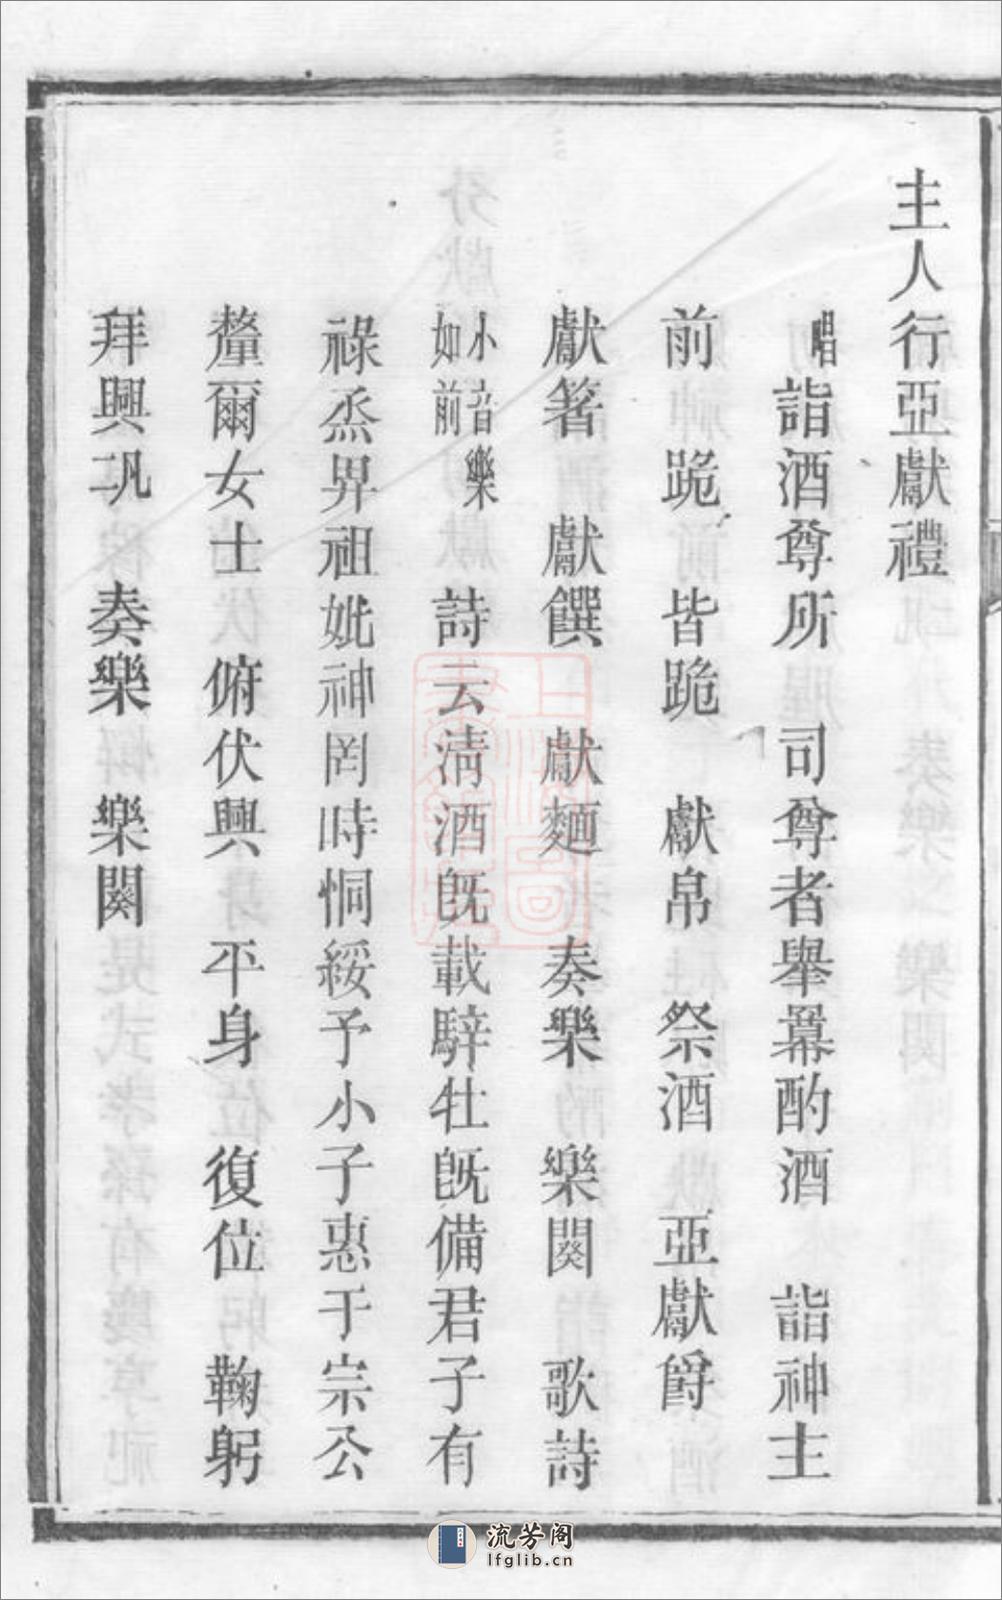 主人行亞獻禮
唱 詣酒尊所 司尊者舉羃酌酒 詣神主
前 跪 皆跪 獻帛 祭酒 亞獻爵
獻箸 獻饌 獻麵 奏樂 樂闋 歌詩
小音樂如前 詩云淸酒旣載騂牡旣備君子有
祿烝畀祖妣神罔時恫綏予小子惠于宗公
釐爾女士 俯伏興 平身 復位 鞠躬
拜興凡二 奏樂 樂闋
流芳阁
lfglib.cn